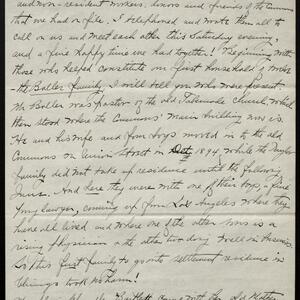 and non-resident workers, donors and friends of the Commons
that we had on file. I telephoned and wrote them all to
call on us and meet each other this Saturday evening,
and a fine happy time we had together! Beginning with
those who helped constitute our first household I note
the Boller family. I will tell you who were present.
Mr Boller was pastor of the old Tabernacle Church, which
then stood where the Commons' Main building now is.
He and his wife and four boys moved in to the old
Commons on Union Street in Oct 1894, while the Taylor
family did not take up residence until the following
June. And here they were with one of their boys, a fine
young lawyer, coming up from Los Angeles where they
have all lived and where one of the other sons is a
rising physician and the other two doing well in business.
So this first family to grants settlement residence in
Chicago took no harm!
Bartlett came with her old Mother